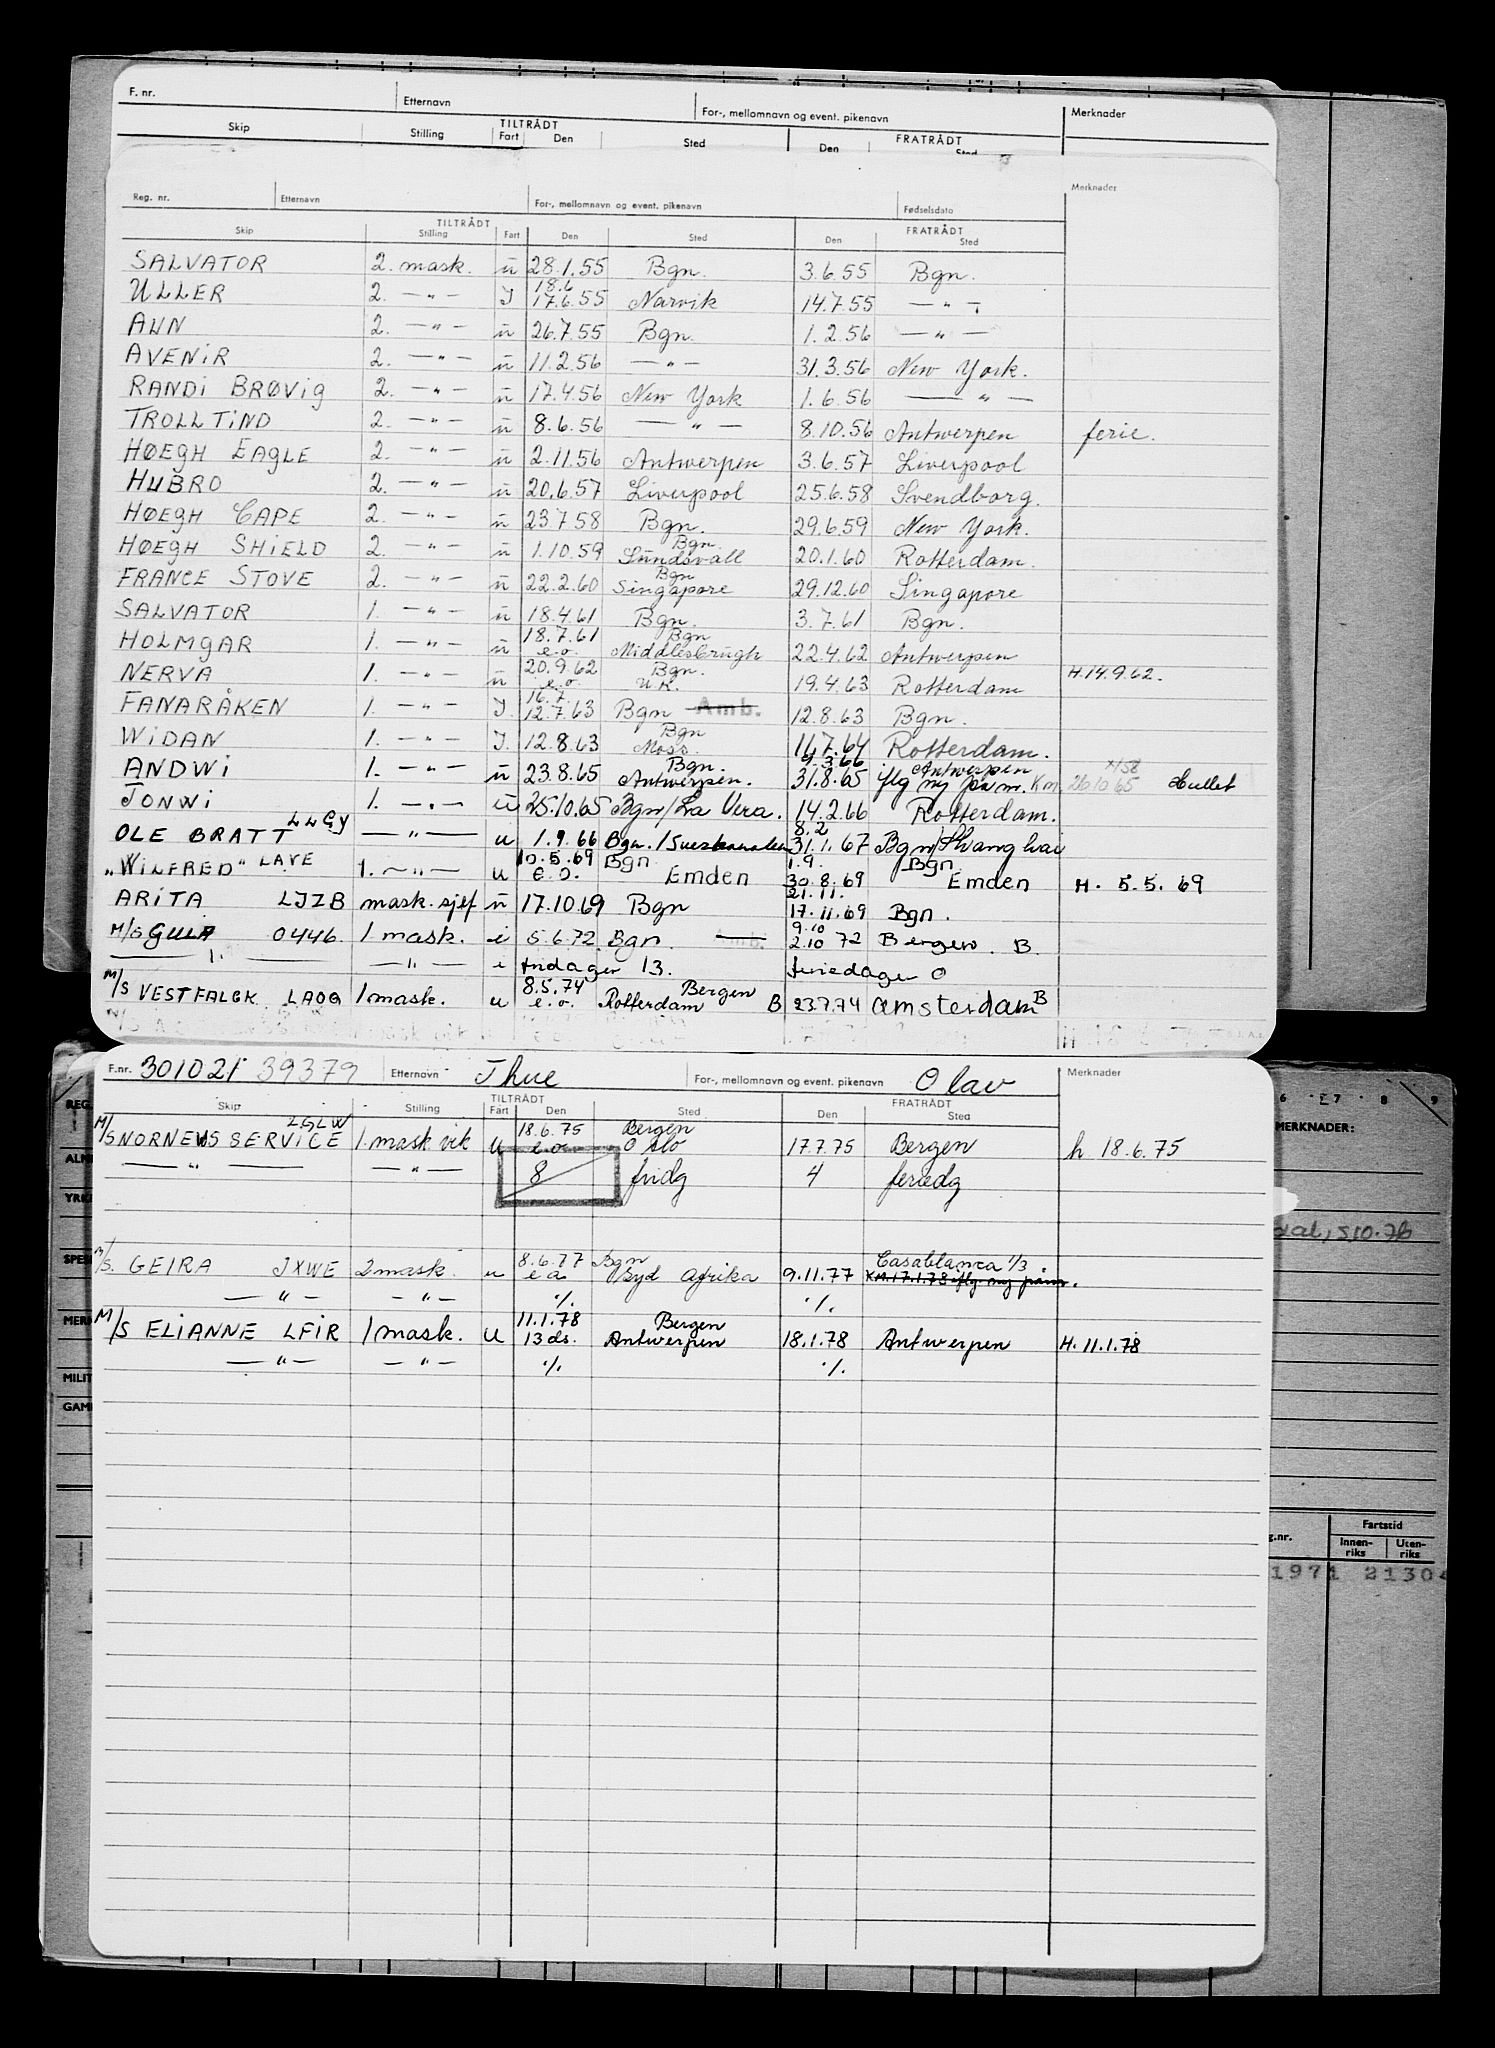 F. nr. Etternavn For-, mellomnavn og event. pikenavn Merknader
Skip Stilling TILTRÅDT Fart Den Sted Den FRATRÅDT Sted
Reg. nr. Etternavn For-, mellomnavn og event. pikenavn Fødselsdato Merknader
Skip TILTRÅDT Stilling Fart Den Sted Den FRATRÅDT Sted
SALVATOR 2. mask. u 28.1.55 Bgn. 3.6.55 Bgn.
ULLER 2. — " — J 18.6 17.6.55 Narvik 14.7.55 — " —
AUN 2. — " — u 26.7.55 Bgn. 1.2.56 — " —
AVENIR 2. — " — u 11.2.56 — " — 31.3.56 New York.
RANDI BRØVIG 2. — " — u 17.4.56 New York 1.6.56 — " —
TROLLTIND 2. — " — u 8.6.56 — " — 8.10.56 Antwerpen ferie.
HØEGH EAGLE 2. — " — u 2.11.56 Antwerpen 3.6.57 Liverpool
HUBRO 2. — " — u 20.6.57 Liverpool 25.6.58 Svendborg.
HØEGH CAPE 2. — " — u 23.7.58 Bgn. 29.6.59 New York.
HØEGH SHIELD 2. — " — u 1.10.59 Bgn Sundsvall 20.1.60 Rotterdam.
FRANCE STOVE 2. — " — u 22.2.60 Bgn Singapore 29.12.60 Singapore
SALVATOR 1. — " — u 18.4.61 Bgn. 3.7.61 Bgn.
HOLMGAR 1. — " — u 18.7.61 e.o. Bgn Middlesbrugh 22.4.62 Antwerpen
NERVA 1. — " — u 20.9.62 e.o. Bgn. U.K. 19.4.63 Rotterdam H.14.9.62.
FANARÅKEN 1. — " — J. 16.7. 12.7.63 Bgn Amb. 12.8.63 Bgn.
WIDAN 1. — " — J. 12.8.63 Bgn Moss. 11.7.64 Rotterdam.
ANDWI 1. — " — u 23.8.65 Bgn. Antwerpen. 9.3.66 31.8.65 Antwerpen iflg ny Km. 26.10.65
JONWI 1. — " — u 25.10.65 Bgn/La Vera. 14.2.66 Rotterdam.
OLE BRATT LLGY — " — u 1.9.66 Bgn./Suezkanalen 8.2 31.1.67 Bgn/Shanghai
"WILFRED" LAVE 1. — " — u 10.5.69 e.o. Bgn Emden 1.9. 30.8.69 Bgn Emden H. 5.5.69
ARITA LJZB mask. sjef u 17.10.69 Bgn 21.11. 17.11.69 Bgn.
M/S GULA 0446. 1 mask. i 5.6.72 Bgn. Amb. 9.10 2.10 72 Bergen. B.
— " — — " — i fridager 13. feriedager 0
M/S VESTFALCK LAOG 1 mask. u 8.5.74 e.o. Bergen Rotterdam B 23.7.74 Amsterdam B
F.nr. 301021 39379 Etternavn Thue For-, mellomnavn og event. pikenavn Olav Merknader
Skip Stilling TILTRÅDT Fart Den Sted Den FRATRÅDT Sted
M/S NORNEWS SERVICE LGLW 1. mask vik u 18.6.75 e.o. Bergen Oslo 17.7.75 Bergen h 18.6.75
— " — — " — 8 fridg 4 feriedg
M/S. GEIRA JXWE 2 mask. u 8.6.77 e.o. Bgn Syd Afrika 9.11.77 Casablanca 1/3. KM.17.1.78 iflg. ny påm.
— " — — " — ./. ./.
M/S ELIANNE LFIR 1 mask. U 11.1.78 13 ds. Bergen Antwerpen 18.1.78 Antwerpen H. 11.1.78
— " — — " — ./. ./.
6 7 8 9
MERKNADER:
Fartstid
Innen-riks Uten-riks
1971 21304